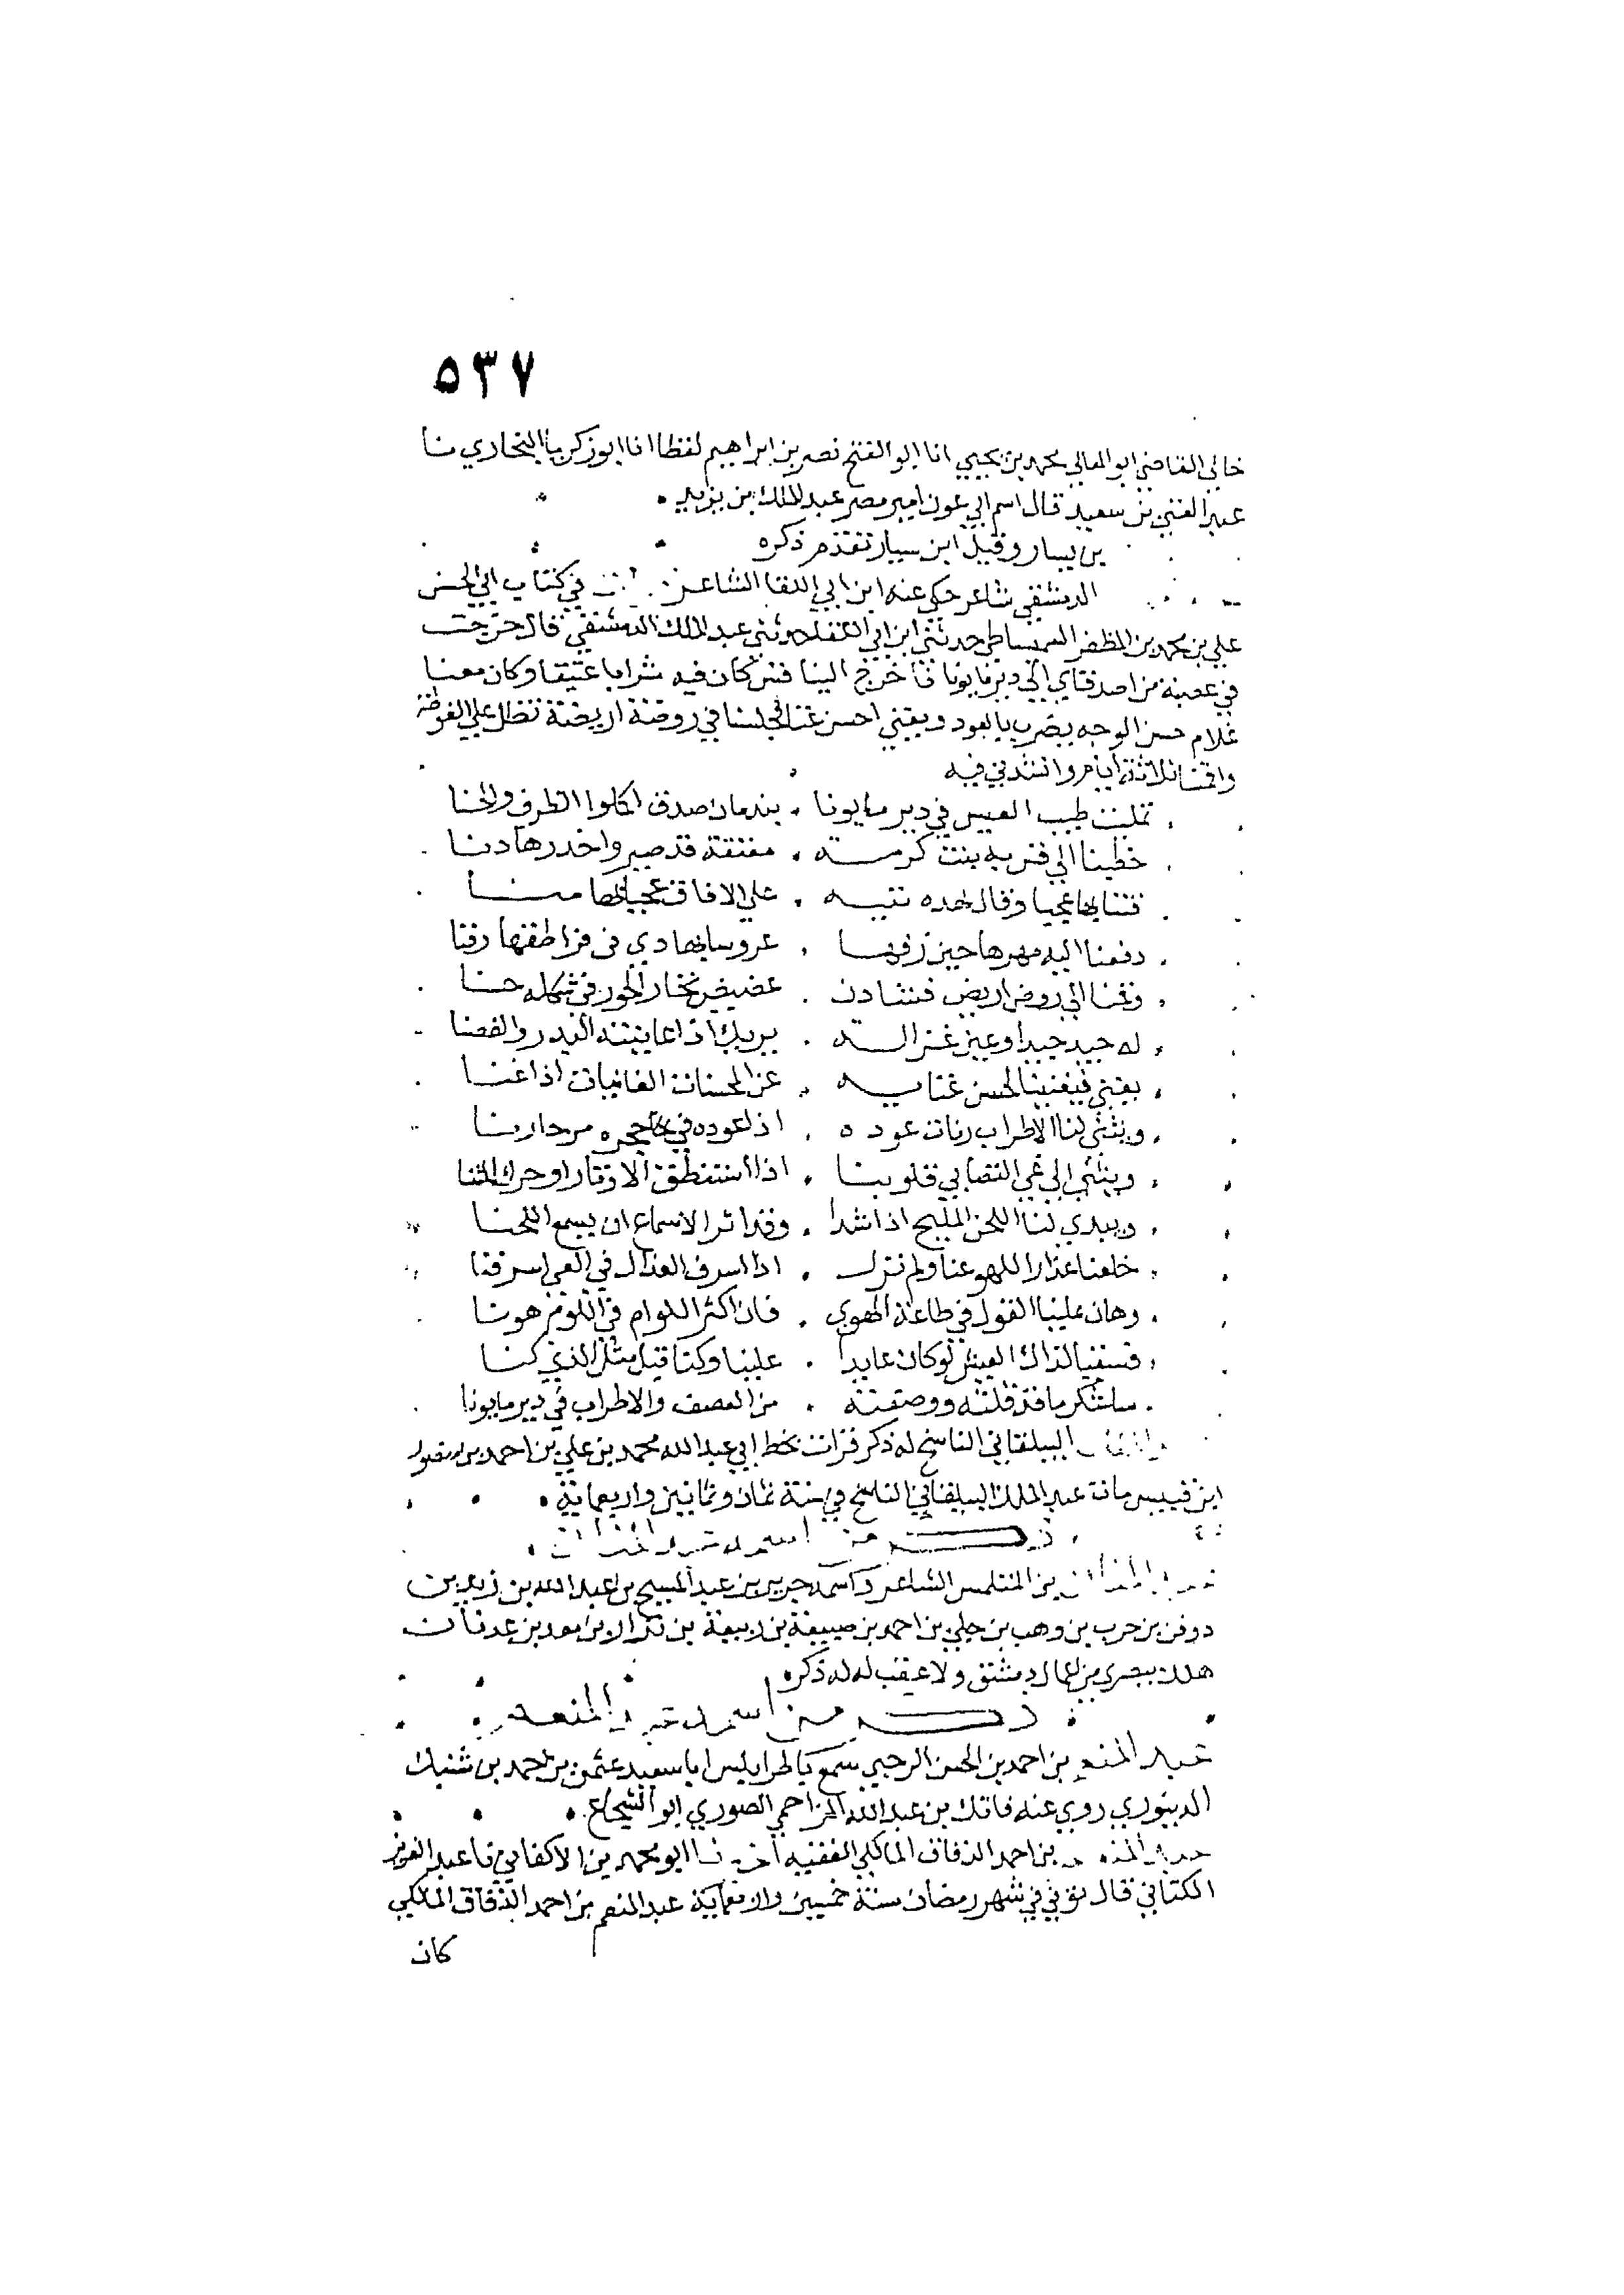 ٥٣٧
خالي القاضي ابو المعالي محمد بن يحيي انا ابو الفتح نصر بن ابراهيم لفظا انا ابو زكريا البخاري نا
عبد الغني بن سعيد قال اسم ابي عون امير مصر عبد الملك بن يزيد
بن يسار وقيل ابن سيار تقدم ذكره
الدمشقي شاعر حكي عنه ابن ابي اللقا الشاعر في كتاب ابي الحسن
علي بن محمد بن المظفر السمساطي حدثني ابن ابي حدثني عبد الملك الدمشقي قال خرجت
في عصبة من اصدقاي الي دير مايونا فاخرج الينا قس كان فيه شرابا عتيقا وكان معنا
غلام حسن الوجه يضرب بالعود ويغني احسن غنا فجلسنا في روضة اريضة تظل علي الغوطة
واقمنا ثلاثة ايام وانشدني فيه
تمليت طيب العيش في دير مايونا بندمان صدق اكملوا الظرف والحسنا
خطبنا الي قس به بنت كرمة معتقة قد صير واخدرها دنا
علي الافاق
دفعنا اليه مهرها حين زفها عروسا تهادي في قراطقها رفنا
وقمنا الي روض اريض فشادن غضيض تخار الحور في شكله حسنا
له جيد جيدا وعين غزالة يريك اذا عاينته البدر والغصنا
يغني فيغنينا لحسن غنايه عن المحسنات الغانيات اذا غنا
ويثني لنا الاطراب رنات عوده اذ لعوده في حجره
ويثني الي غي التصابي قلوبنا اذا استنطق الاوتار او حرك المثنا
ويبدي لنا اللحن المليح اذا شدا الاسماع ان يسمع اللحنا
خلعنا عذار اللهو عنا ولم نزل اذا اسرف العذال في الغي اسرفنا
وهان علينا القول في طاعة الهوي فان اكثر اللوام في اللوم هونا
فسقيا لذاك العيش لو كان عايدا علينا وكنا قبل مثل الذي كنا
ساشكر ما قد قلته ووصفته من القصف والاطراب في دير مايونا
البيلقاني الناسخ له ذكر قرات بخط ابي عبد الله محمد بن علي بن احمد بن منصور
ابن قبيس مات عبد الملك البيلقاني الناسخ في سنة ثمان وثمانين واربعماية
ذكر من اسمه عبد المنان
عبد المنان بن المتلمس الشاعر واسمه جرير بن عبد المسيح بن عبد الله بن زيد بن
دوفن بن حرب بن وهب بن جلي بن احمد بن ضبيعة بن ربيعة بن نزار بن معد بن عدنان
هلك ببصري من اعمال دمشق ولا عقب له له ذكر
ذكر من اسمه عبد المنعم
عبد المنعم بن احمد بن الحسن الرحبي سمع باطرابلس ابا سعيد عثمن بن احمد بن شنبك
الدينوري روي عنه فاتك بن عبد الله المزاحمي الصوري ابو الشجاع
عبد المنعم بن احمد الدقاق المالكي الفقيه اخبرنا ابو محمد بن الاكفاني نا عبد العزيز
الكتاني قال توفي في شهر رمضان سنة خمسين واربعماية عبد المنعم بن احمد الدقاق المالكي
كان